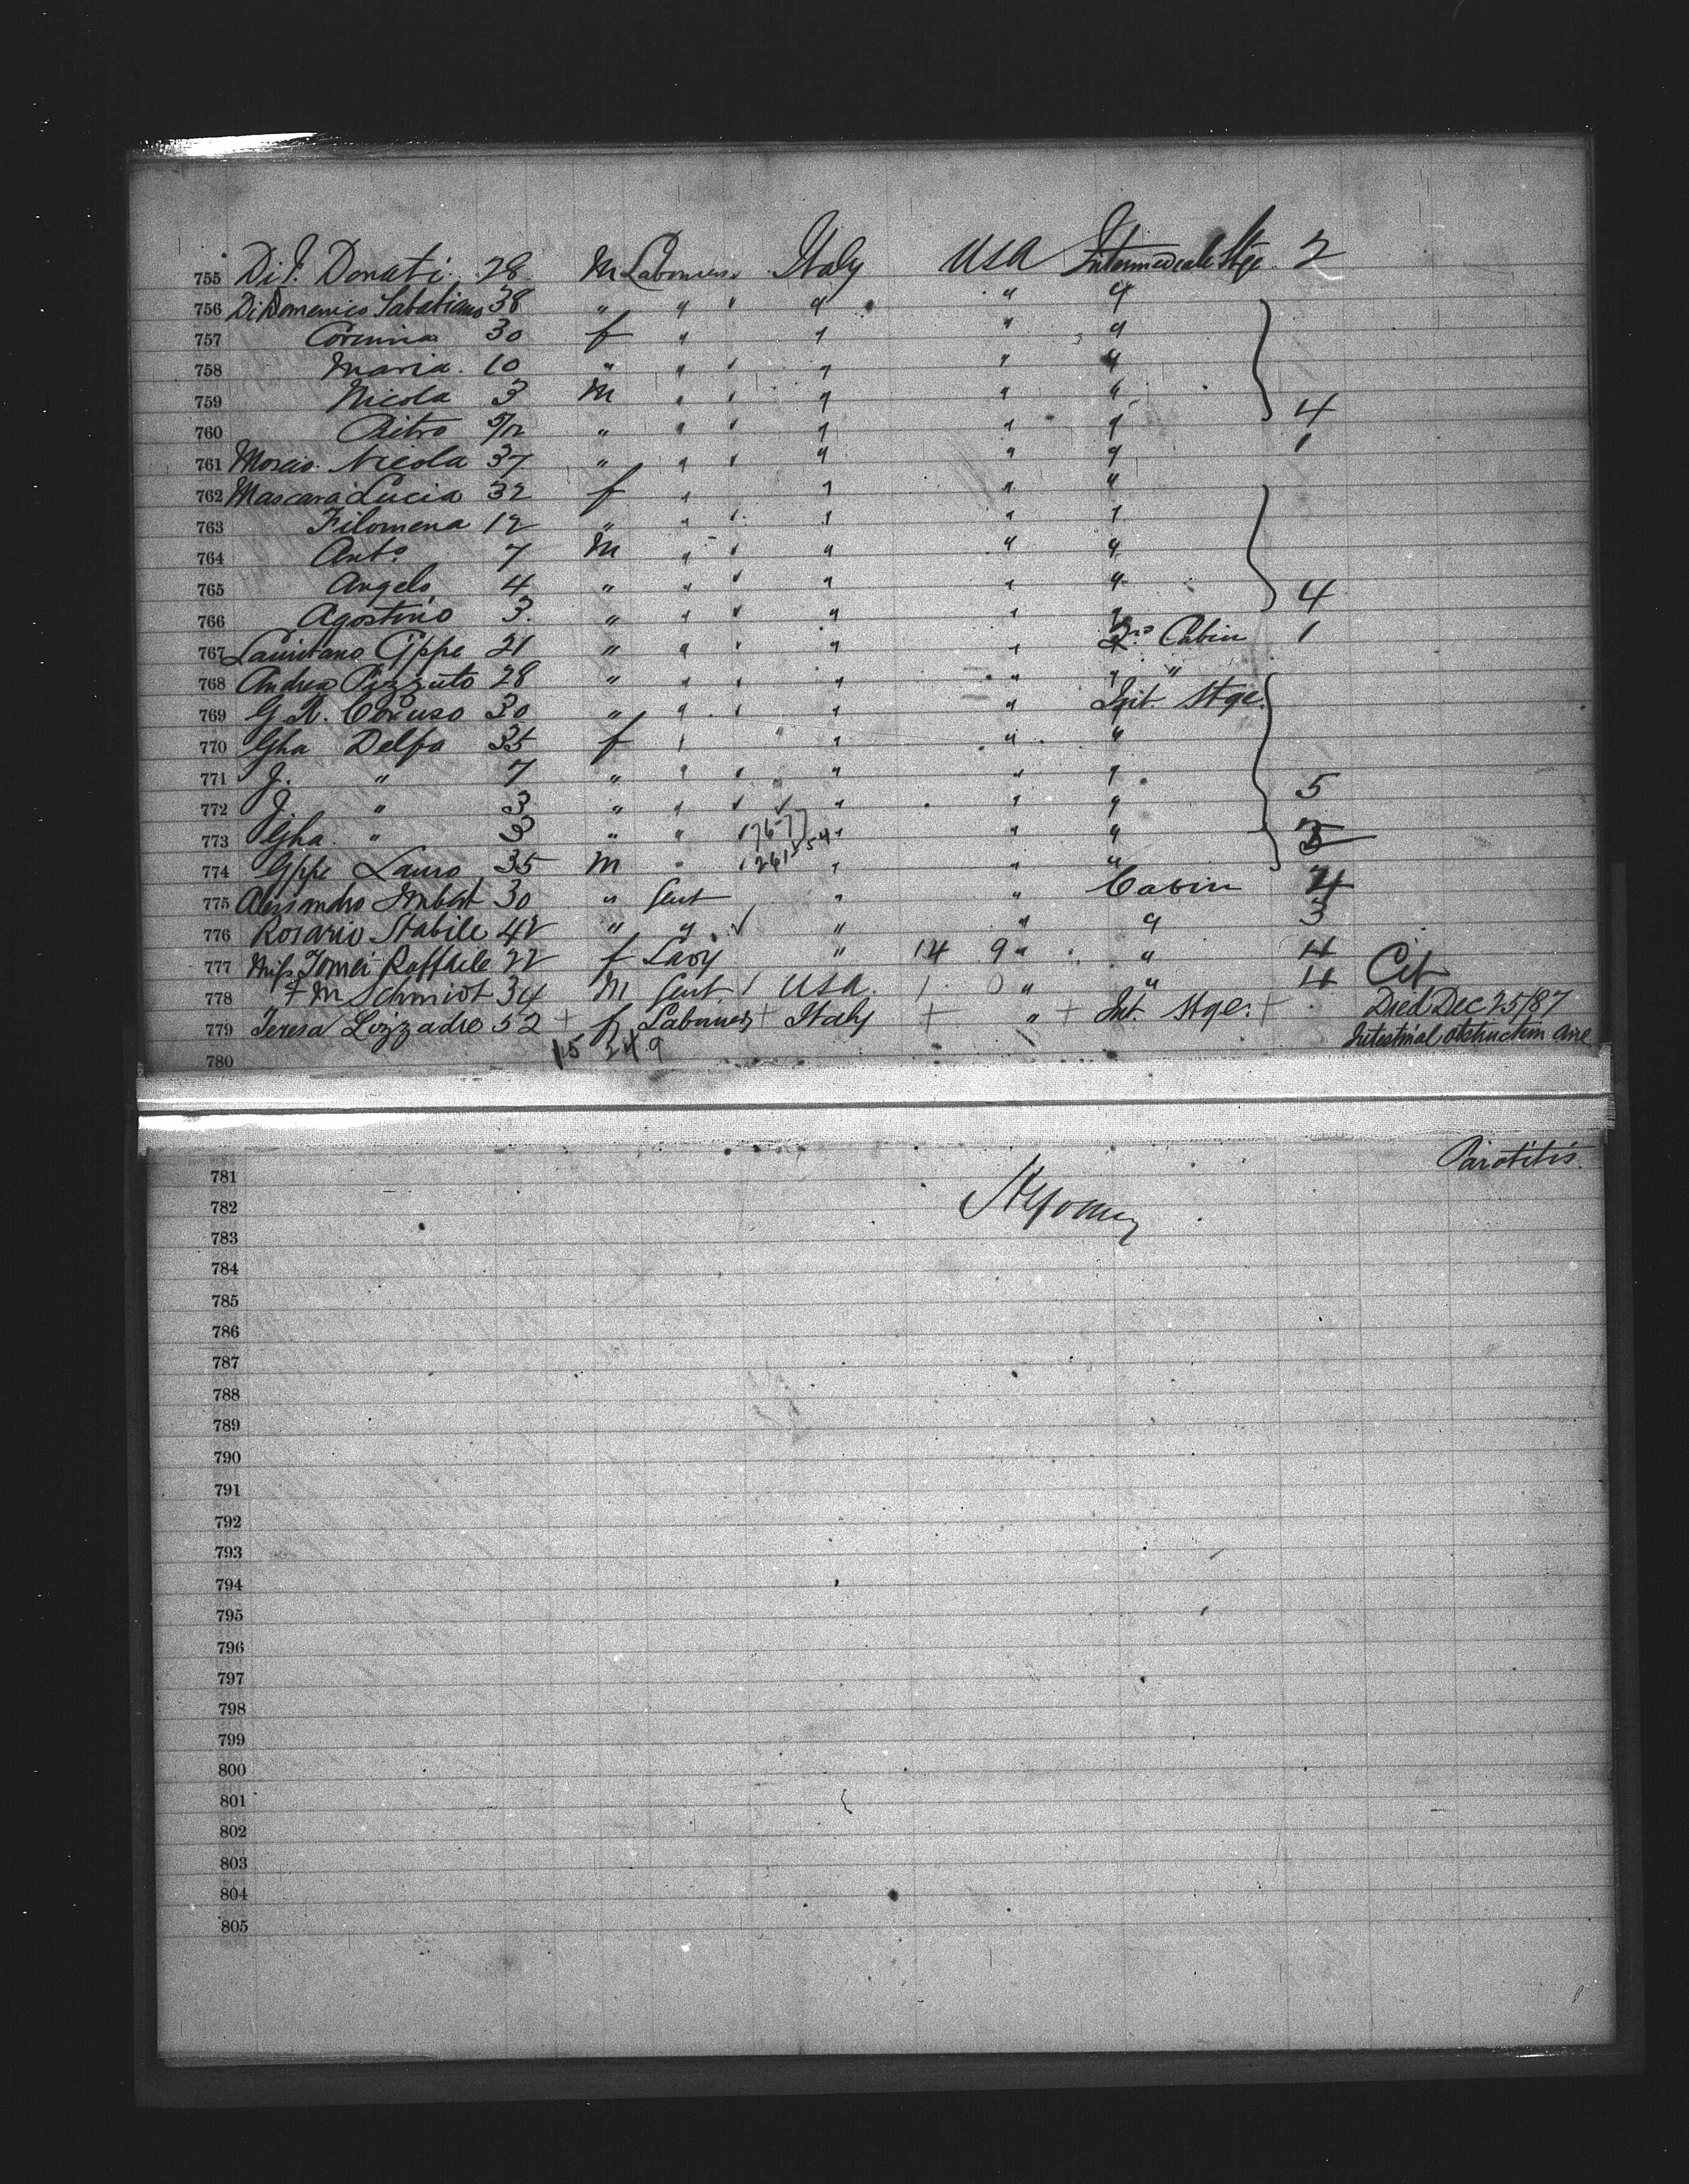 755 Di P. Donati 28 M Labourers Italy USA Intermediate Stge. 2
756 Di Domenico Sabatiano 38 " " " " "
757 Corinna 30 f " " " "
758 Maria. 10 " " " " "
759 Nicola 3 M " " " "
760 Pitro 9/12 " " " " " 4
761 Moscio. Nicola 37 " " " " " 1
762 Mascara Lucia 32 f " " " "
763 Filomena 12 " " " " "
764 Anto. 7 M " " " "
765 Angelo 4 " " " " " 4
766 Agostino 3. " " " " "
767 Gppe 21 " " " " 2nd Cabin 1
768 Andrea Pizzuto 28 " " " " " "
769 G. R. Coruso 30 " " " " Int Stge.
770 Gha Delfa 35 f " " " "
771 J. " 7 " " " " "
772 J. " 3 " " " " " 5
773 Gha. " 3 " " 17677 " " "
774 Gppe Lauro 35 M " " " "
775 Alessandro Imbert 30 " Gent " " Cabin 4
776 Rosario Stabile 42 " " " " " 3
777 Miss Tomei Raffaele 22 f Lady " 14 9 " " 4
778 F M Schmidt 34 M Gent USA. 1 0 " " 4 Cit
779 Teresa Lozzadro 52 + f Labourers + Italy + " + Int. Stge. + Died Dec 25/87
780 15 249 Intestinal obstruction and
781 Parotitis.
782
783
784
785
786
787
788
789
790
791
792
793
794
795
796
797
798
799
800
801
802
803
804
805